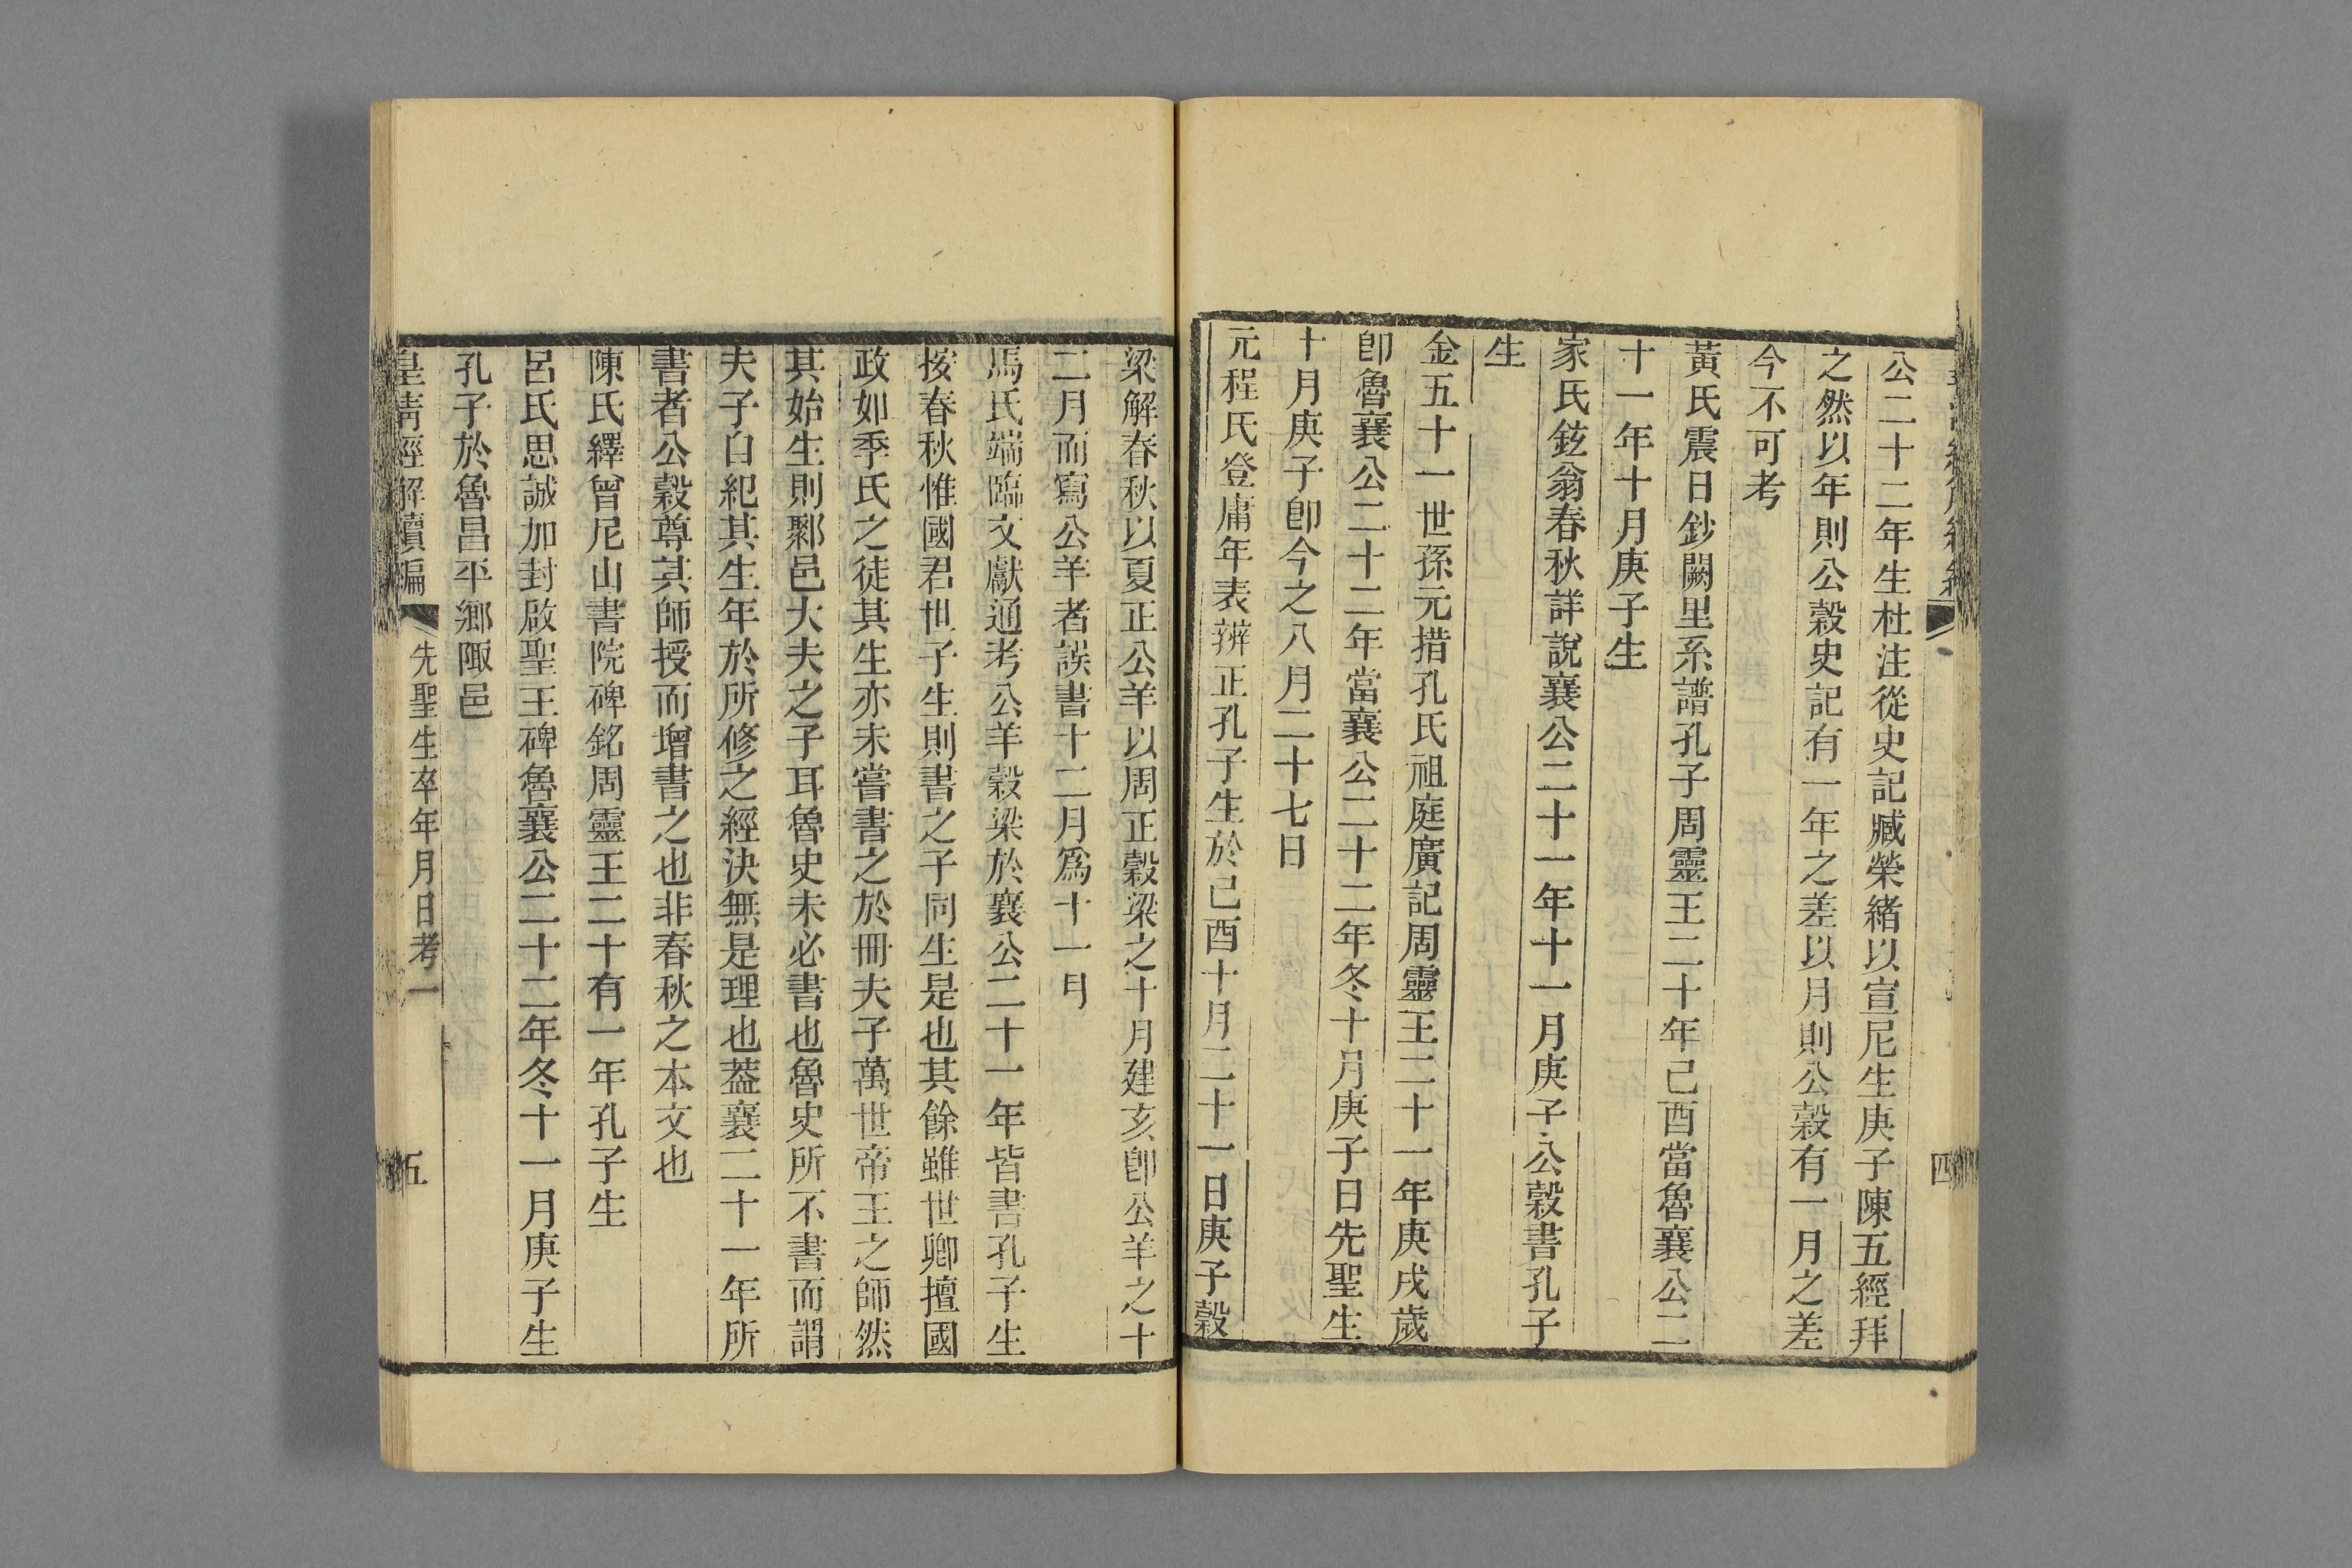 公二十二年生杜注從史記臧榮緒以宣尼生庚子陳五經拜
之然以年則公穀史記有一年之差以月則公穀有一月之差
今不可考
黃氏震日鈔闕里系譜孔子周靈王二十年己酉當魯襄公二
十一年十月庚子生
家氏鉉翁春秋詳說襄公二十一年十一月庚子公穀書孔子
生
金五十一世孫元措孔氏祖庭廣記周靈王二十一年庚戌歲
卽魯襄公二十二年當襄公二十二年冬十月庚子日先聖生
十月庚子卽今之八月二十七日
元程氏登庸年表辨正孔子生於己酉十月二十一日庚子穀
四
梁解春秋以夏正公羊以周正穀梁之十月建亥卽公羊之十
二月而寫公羊者誤書十二月爲十一月
馬氏端臨文獻通考公羊穀梁於襄公二十一年皆書孔子生
按春秋惟國君世子生則書之子同生是也其餘雖世卿擅國
政如季氏之徒其生亦未嘗書之於冊夫子萬世帝王之師然
其始生則鄹邑大夫之子耳魯史未必書也魯史所不書而謂
夫子自紀其生年於所修之經決無是理也葢襄二十一年所
書者公穀尊其師授而增書之也非春秋之本文也
陳氏繹曾尼山書院碑銘周靈王二十有一年孔子生
呂氏思誠加封啟聖王碑魯襄公二十二年冬十一月庚子生
孔子於魯昌平鄉陬邑
皇清經解續編 先聖生卒年月日考一 五